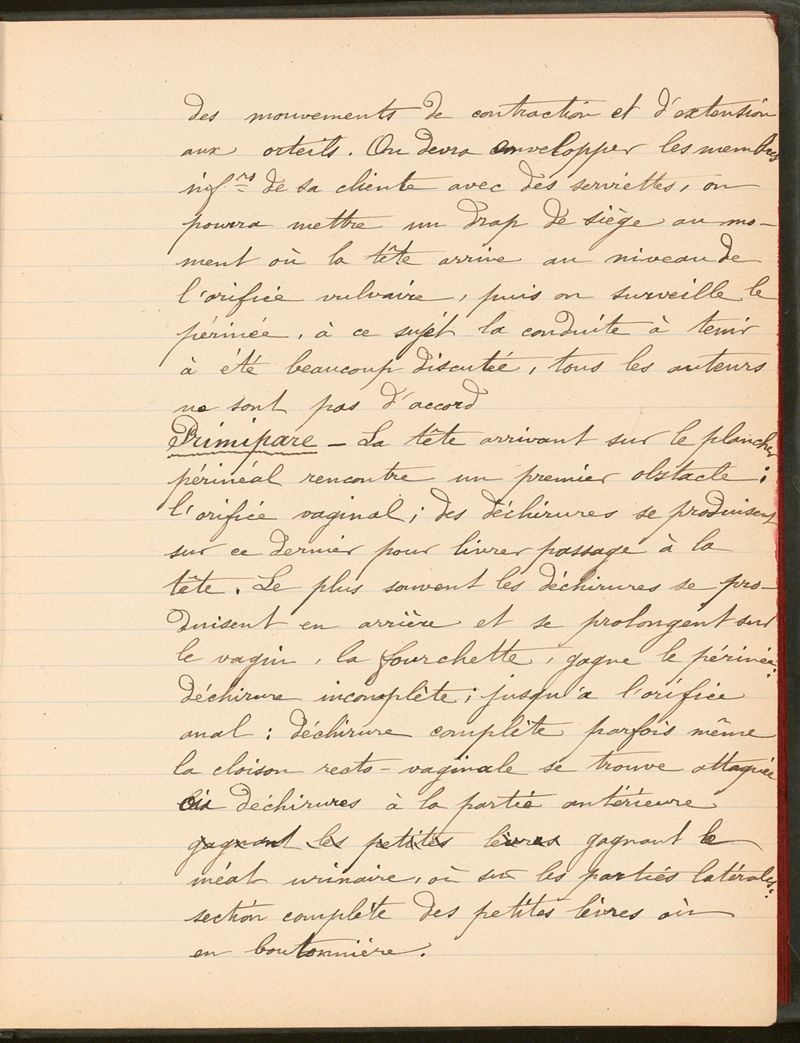 des mouvements de contraction et d'extension
aux orteils. On devra envelopper les membres
inf^rs de sa cliente avec des serviettes, on
pourra mettre un drap de siège au mo-
ment où la tête arrive au niveau de
l'orifice vulvaire, puis on surveille le
périnée, à ce sujet la conduite à tenir
à été beaucoup discutée, tous les auteurs
ne sont pas d'accord
Primipare - La tête arrivant sur le plancher
périnéal rencontre un premier obstacle :
l'orifice vaginal ; des déchirures se produisent
sur ce dernier pour livrer passage à la
tête. Le plus souvent les déchirures se pro-
duisent en arrière et se prolongent sur
le vagin, la fourchette, gagne le périnée :
déchirure incomplète ; jusqu'a l'orifice
anal : déchirure complète parfois même
la cloison recto-vaginale se trouve attaquée
déchirures à la partie antérieure
gagnant les petites lèvres gagnant le
méat urinaire, où sur les parties latérales :
section complète des petites lèvres où
en boutonnière.